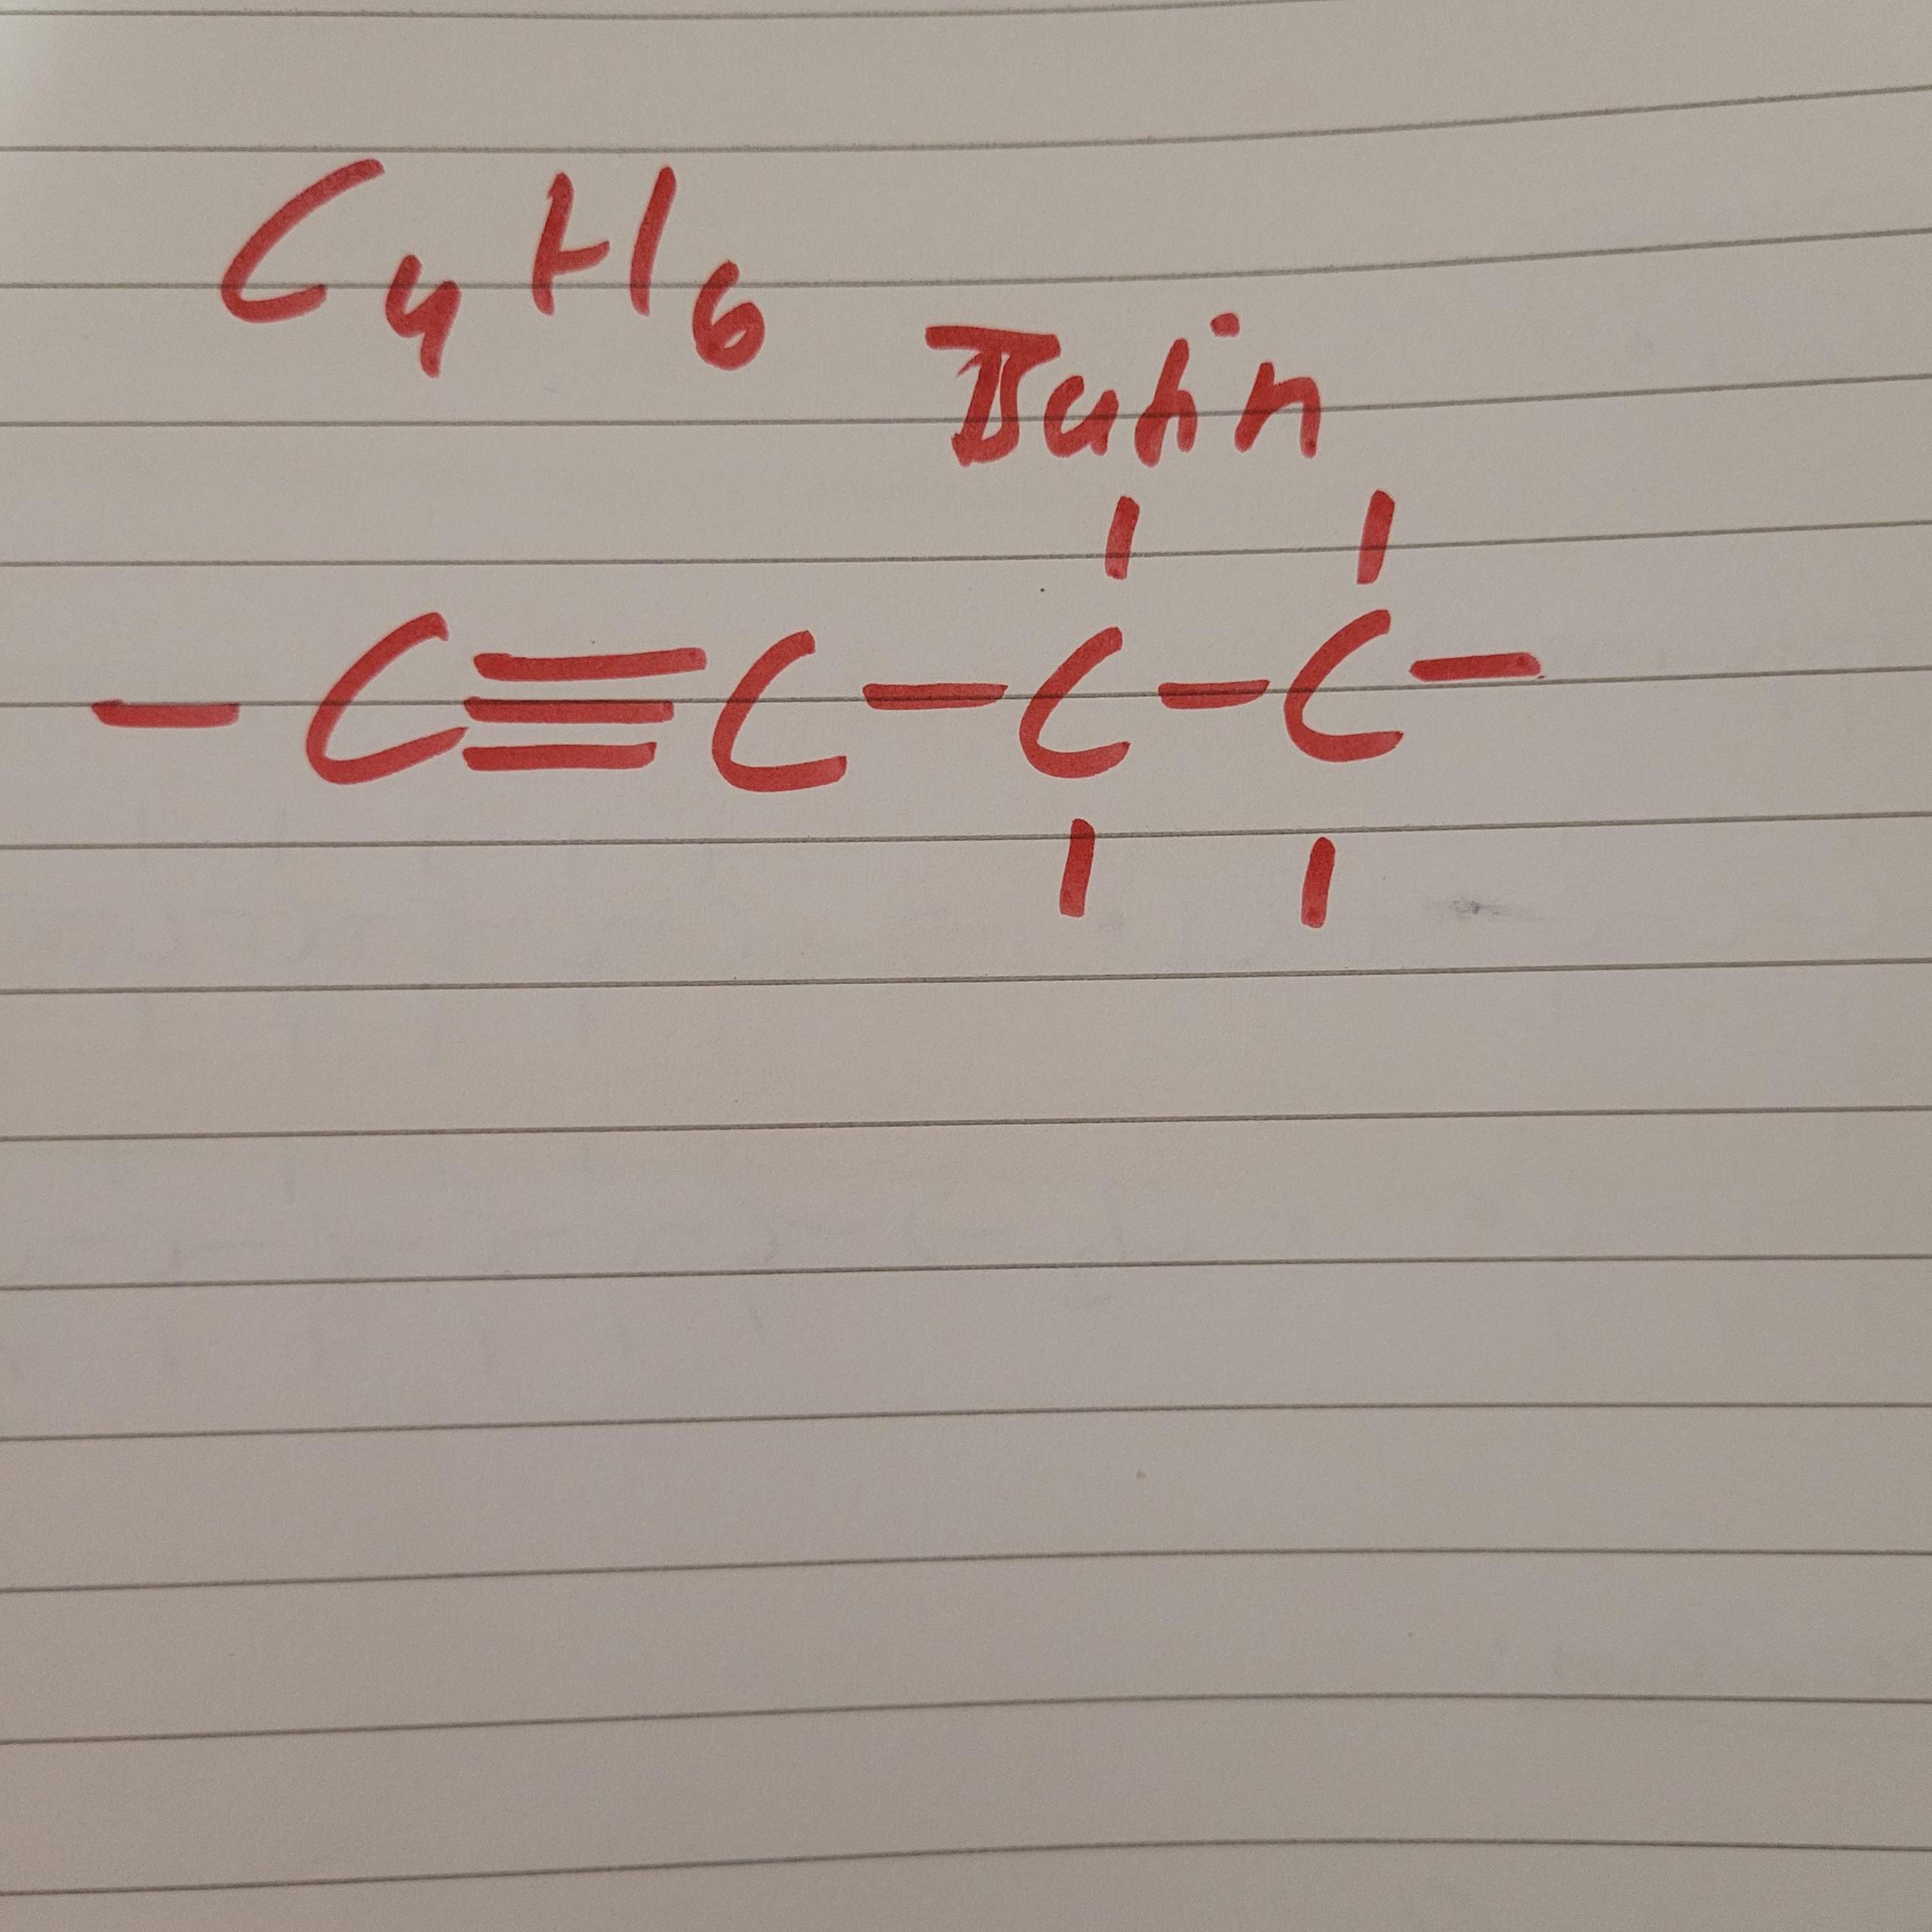 C₄H₆
Butin
-C≡C-C-C-